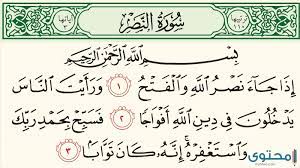 ترتيبها ١١٠ سُورَةُ النَّصْرِ آياتها ٣
بِسْمِ اللَّهِ الرَّحْمَٰنِ الرَّحِيمِ
إِذَا جَاءَ نَصْرُ اللَّهِ وَالْفَتْحُ ١ وَرَأَيْتَ النَّاسَ
يَدْخُلُونَ فِي دِينِ اللَّهِ أَفْوَاجًا ٢ فَسَبِّحْ بِحَمْدِ رَبِّكَ
وَاسْتَغْفِرْهُ إِنَّهُ كَانَ تَوَّابًا ٣
محتوى